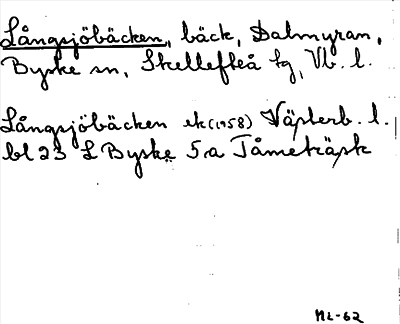 Långsjöbäcken, bäck, Dalmyran,
Byske sn, Skellefteå tg, Vb. l.
Långsjöbäcken ek (1958) Västerb. l.
bl 23 L Byske 5a Tåmeträsk
NL-62